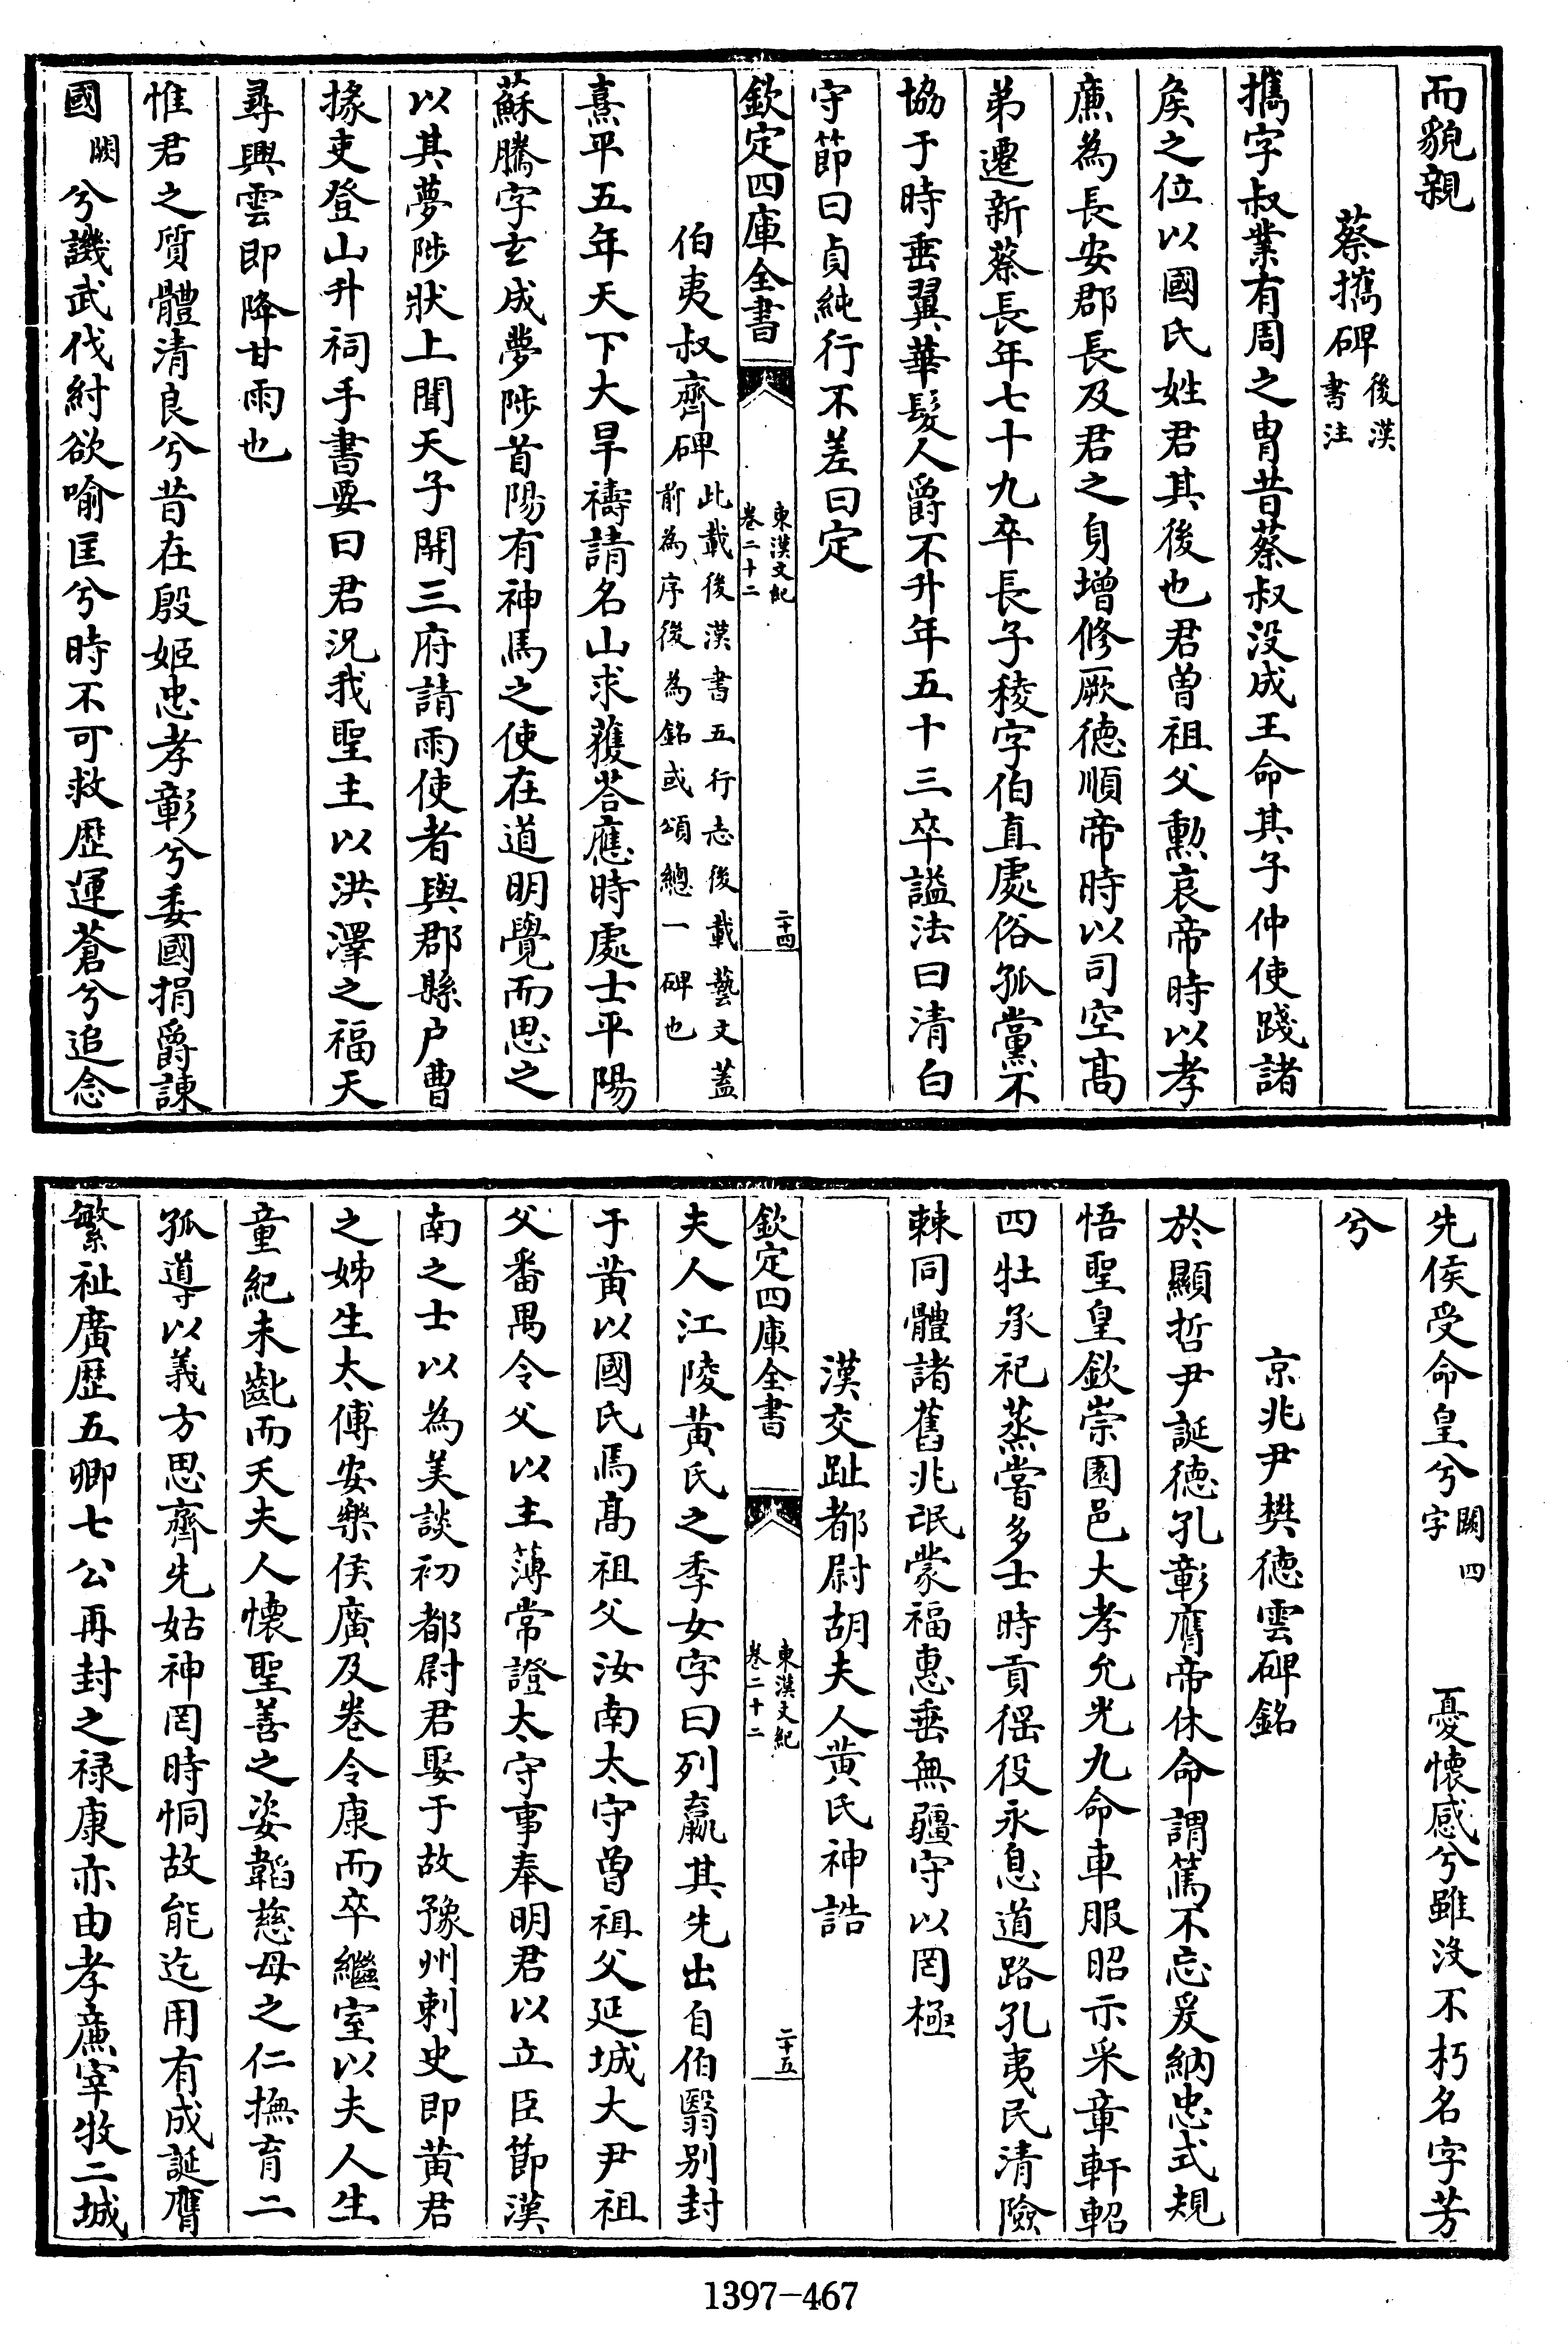 而貌親
蔡攜碑後漢書注
攜字叔業有周之胄昔蔡叔没成王命其子仲使踐諸
矦之位以國氏姓君其後也君曾祖父勲哀帝時以孝
廉為長安郡長及君之身增修厥徳順帝時以司空髙
弟遷新蔡長年七十九卒長子稜字伯直處俗孤黨不
協于時垂翼華髮人爵不升年五十三卒謚法曰清白
守節曰貞純行不差曰定
欽定四庫全書 東漢文紀 卷二十二 二十四
伯夷叔齊碑此載後漢書五行志後載藝文蓋前為序後為銘或頌總一碑也
熹平五年天下大旱禱請名山求獲荅應時處士平陽
蘇騰字玄成夢陟首陽有神馬之使在道明覺而思之
以其夢陟狀上聞天子開三府請雨使者與郡縣户曹
掾吏登山升祠手書要曰君況我聖主以洪澤之福天
尋興雲即降甘雨也
惟君之質體清良兮昔在殷姬忠孝彰兮委國捐爵諫
國闕兮譏武伐紂欲喻匡兮時不可救歴運蒼兮追念
先侯受命皇兮闕四字憂懐感兮雖没不朽名字芳
兮
京兆尹樊徳雲碑銘
於顯哲尹誕徳孔彰膺帝休命謂篤不忘爰納忠式規
悟聖皇欽崇園邑大孝允光九命車服昭示采章軒軺
四牡承祀蒸嘗多士時貢徭役永息道路孔夷民清險
棘同體諸舊兆氓蒙福惠垂無疆守以罔極
漢交趾都尉胡夫人黄氏神誥
欽定四庫全書 東漢文紀 卷二十二 二十五
夫人江陵黄氏之季女字曰列嬴其先出自伯翳别封
于黄以國氏焉髙祖父汝南太守曾祖父延城大尹祖
父番禺令父以主薄常證太守事奉明君以立臣節漢
南之士以為美談初都尉君娶于故豫州刺史即黄君
之姊生太傅安樂侯廣及卷令康而卒繼室以夫人生
童紀未齔而夭夫人懐聖善之姿韜慈母之仁撫育二
孤導以義方思齊先姑神罔時恫故能迄用有成誕膺
繁祉廣歴五卿七公再封之禄康亦由孝廉宰牧二城
1397-467